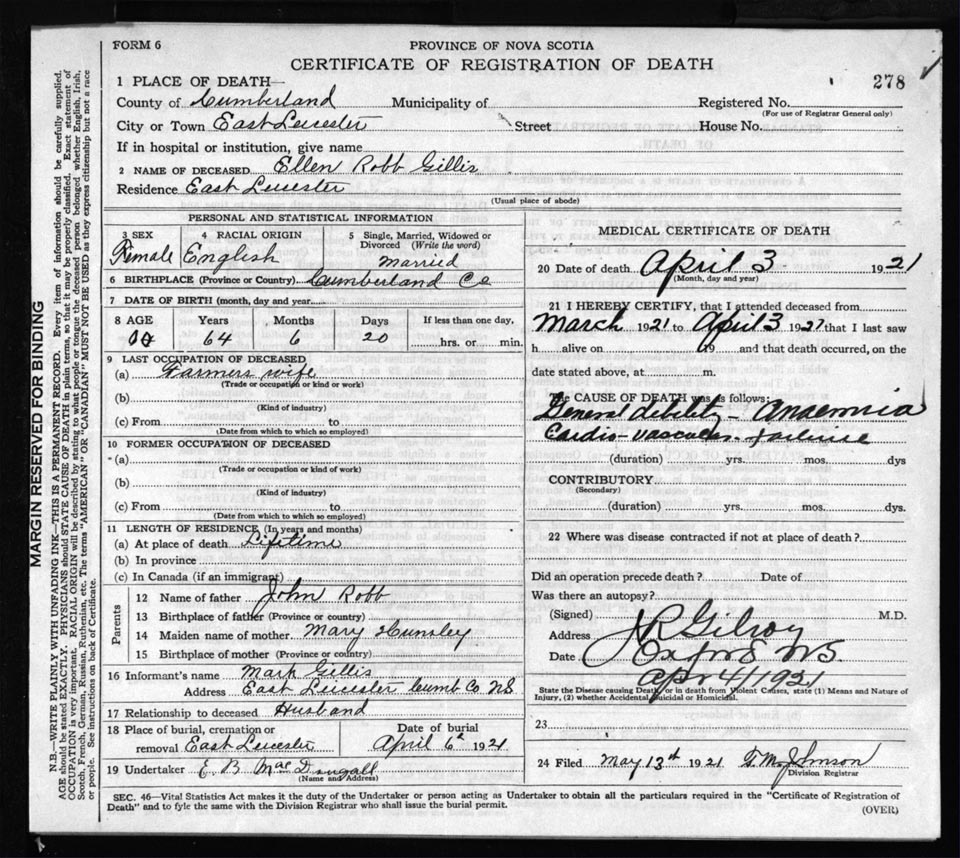 FORM 6
PROVINCE OF NOVA SCOTIA
CERTIFICATE OF REGISTRATION OF DEATH
278
1 PLACE OF DEATH—
County of Cumberland Municipality of Registered No.
(For use of Registrar General only)
City or Town East Leicester Street House No.
If in hospital or institution, give name
2 NAME OF DECEASED Ellen Robb Gillis
Residence East Leicester
(Usual place of abode)
PERSONAL AND STATISTICAL INFORMATION
3 SEX Female
4 RACIAL ORIGIN English
5 Single, Married, Widowed or Divorced (Write the word) Married
6 BIRTHPLACE (Province or Country) Cumberland Co
7 DATE OF BIRTH (month, day and year)
8 AGE Years Months Days If less than one day,
64 6 20 hrs. or min.
9 LAST OCCUPATION OF DECEASED
(a) Farmers wife
(Trade or occupation or kind or work)
(b)
(Kind of industry)
(c) From to
(Date from which to which so employed)
10 FORMER OCCUPATION OF DECEASED
(a)
(Trade or occupation or kind of work)
(b)
(Kind of industry)
(c) From to
(Date from which to which so employed)
11 LENGTH OF RESIDENCE (In years and months)
(a) At place of death Lifetime
(b) In province
(c) In Canada (if an immigrant)
Parents
12 Name of father John Robb
13 Birthplace of father (Province or country)
14 Maiden name of mother Mary Hunsley
15 Birthplace of mother (Province or country)
16 Informant's name Mark Gillis
Address East Leicester Cumb Co NS
17 Relationship to deceased Husband
18 Place of burial, cremation or removal East Leicester
Date of burial April 6th 1921
19 Undertaker E B MacDougall
(Name and Address)
MEDICAL CERTIFICATE OF DEATH
20 Date of death April 3 1921
(Month, day and year)
21 I HEREBY CERTIFY, that I attended deceased from
March 1921 to April 3 1921 that I last saw
h alive on 19 and that death occurred, on the
date stated above, at m.
The CAUSE OF DEATH was as follows:
General debility - Anaemia
Cardio-vascular failure
(duration) yrs. mos. dys
CONTRIBUTORY
(Secondary)
(duration) yrs. mos. dys.
22 Where was disease contracted if not at place of death?
Did an operation precede death? Date of
Was there an autopsy?
(Signed) J R Gilroy M.D.
Address Oxford NS.
Date Apr 4/1921
State the Disease causing Death, or in death from Violent Causes, state (1) Means and Nature of
Injury, (2) whether Accidental, Suicidal or Homicidal.
23
24 Filed May 13th 1921 Johnson
Division Registrar
SEC. 46—Vital Statistics Act makes it the duty of the Undertaker or person acting as Undertaker to obtain all the particulars required in the "Certificate of Registration of
Death" and to fyle the same with the Division Registrar who shall issue the burial permit.
(OVER)
MARGIN RESERVED FOR BINDING
N.B.—WRITE PLAINLY WITH UNFADING INK—THIS IS A PERMANENT RECORD. Every item of information should be carefully supplied.
AGE should be stated EXACTLY. PHYSICIANS should STATE CAUSE OF DEATH in plain terms, so that it may be properly classified. Exact statement of
OCCUPATION is very important. RACIAL ORIGIN will be described by stating to what people or tongue the deceased person belonged, whether English, Irish,
Scotch, French, German, Russian, Ruthenian, etc. The terms "AMERICAN" OR "CANADIAN" MUST NOT BE USED as they express citizenship but not a race
or people. See instructions on back of Certificate.